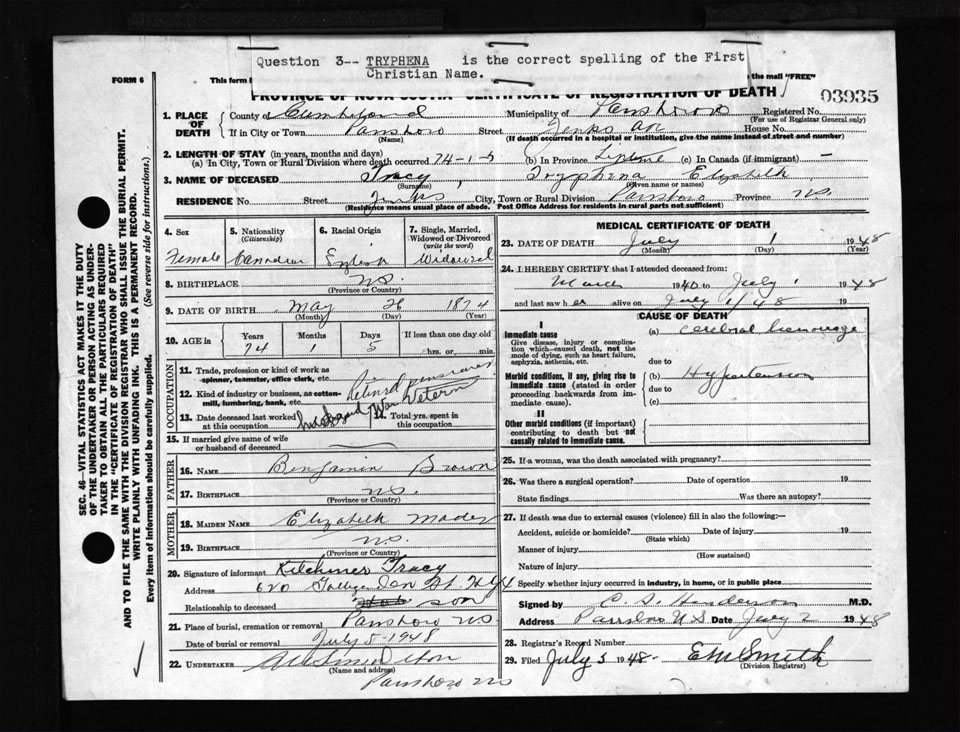 Question 3-- TRYPHENA is the correct spelling of the First
Christian Name.
FORM 6
This form
the mail "FREE"
PROVINCE OF NOVA SCOTIA CERTIFICATE OF REGISTRATION OF DEATH
03935
1. PLACE OF DEATH
County of Cumberland Municipality of Parrsboro Registered No.
(For use of Registrar General only)
If in City or Town Parrsboro Street Jenks Ave House No.
(Name) (If death occurred in a hospital or institution, give the name instead of street and number)
2. LENGTH OF STAY (in years, months and days)
(a) In City, Town or Rural Division where death occurred 74-1-5 (b) In Province Lifetime (c) In Canada (if immigrant) -
3. NAME OF DECEASED Tracy, Tryphena Elizabeth
(Surname) (Given name or names)
RESIDENCE No. Street Jenks City, Town or Rural Division Parrsboro Province N.S.
(Residence means usual place of abode. Post Office Address for residents in rural parts not sufficient)
4. Sex
Female
5. Nationality
(Citizenship)
Canadian
6. Racial Origin
English
7. Single, Married, Widowed or Divorced
(write the word)
Widowed
8. BIRTHPLACE N.S.
(Province or Country)
9. DATE OF BIRTH May 26 1874
(Month) (Day) (Year)
10. AGE in
Years Months Days If less than one day old
74 1 5 hrs. or min.
OCCUPATION
11. Trade, profession or kind of work as spinner, teamster, office clerk, etc.
12. Kind of industry or business, as cotton-mill, lumbering, bank, etc.
13. Date deceased last worked at this occupation
Total yrs. spent in this occupation
War Veteran
husband
15. If married give name of wife or husband of deceased
FATHER
16. NAME Benjamin Brown
17. BIRTHPLACE N.S.
(Province or Country)
MOTHER
18. MAIDEN NAME Elizabeth Mader
19. BIRTHPLACE N.S.
(Province or Country)
20. Signature of informant Kitchener Tracy
Address 620
Relationship to deceased son
21. Place of burial, cremation or removal Parrsboro N.S.
Date of burial or removal July 5 - 1948
22. UNDERTAKER
(Name and address)
Parrsboro NS
MEDICAL CERTIFICATE OF DEATH
23. DATE OF DEATH July 1 1948
(Month) (Day) (Year)
24. I HEREBY CERTIFY that I attended deceased from:
March 1940 to July 1 1948
and last saw her alive on July 1/48 19
CAUSE OF DEATH
I
Immediate cause
Give disease, injury or complication which caused death, not the mode of dying, such as heart failure, asphyxia, asthenia, etc.
(a) cerebral hemorrage
due to
Morbid conditions, if any, giving rise to immediate cause (stated in order proceeding backwards from immediate cause).
(b) Hypertension
due to
(c)
II
Other morbid conditions (if important) contributing to death but not causally related to immediate cause.
25. If a woman, was the death associated with pregnancy?
26. Was there a surgical operation? Date of operation 19
State findings Was there an autopsy?
27. If death was due to external causes (violence) fill in also the following:—
Accident, suicide or homicide? Date of injury 19
(State which)
Manner of injury
(How sustained)
Nature of injury
Specify whether injury occurred in industry, in home, or in public place
Signed by C. S. Henderson M.D.
Address Parrsboro N S Date July 2 1948
28. Registrar's Record Number
29. Filed July 5 1948 - EM Smith
(Division Registrar)
SEC. 46—VITAL STATISTICS ACT MAKES IT THE DUTY
OF THE UNDERTAKER OR PERSON ACTING AS UNDER-
TAKER TO OBTAIN ALL THE PARTICULARS REQUIRED
IN THE "CERTIFICATE OF REGISTRATION OF DEATH"
AND TO FILE THE SAME WITH THE DIVISION REGISTRAR WHO SHALL ISSUE THE BURIAL PERMIT.
WRITE PLAINLY WITH UNFADING INK. THIS IS A PERMANENT RECORD.
Every item of information should be carefully supplied. (See reverse side for instructions.)